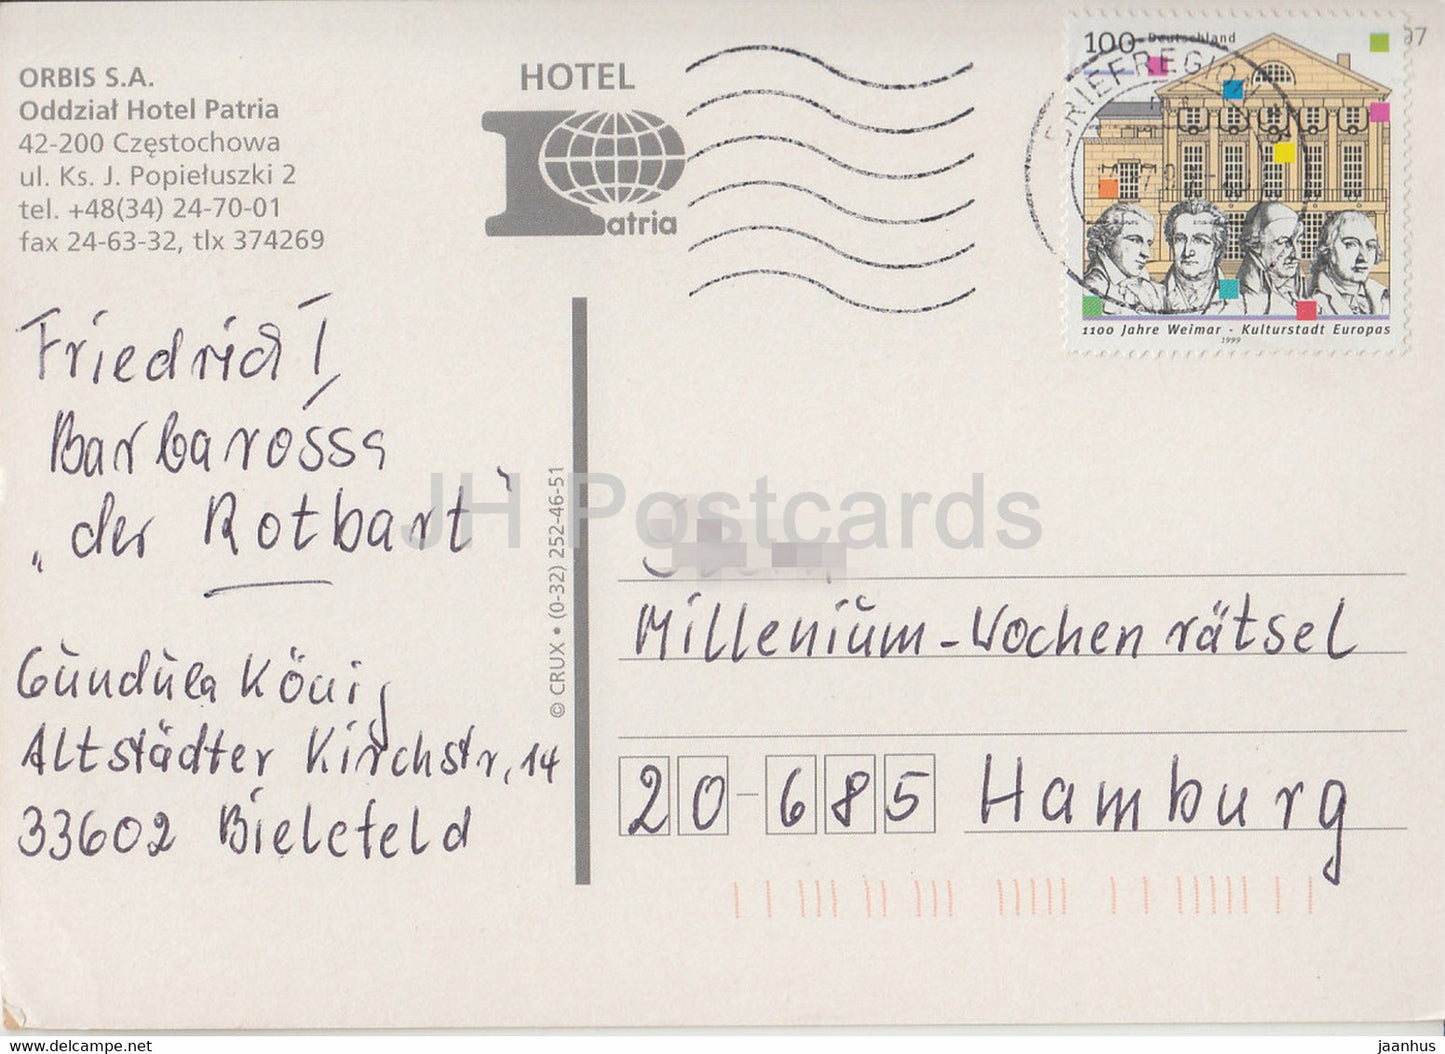 ORBIS S.A.
Oddział Hotel Patria
42-200 Częstochowa
ul. Ks. J. Popiełuszki 2
tel. +48(34) 24-70-01
fax 24-63-32, tlx 374269
HOTEL
Patria
100 Deutschland
BRIEFREGION
1100 Jahre Weimar - Kulturstadt Europas
1999
97
Friedrich I,
Barbarossa
„der Rotbart"
Gundula König
Altstädter Kirchstr. 14
33602 Bielefeld
© CRUX • (0-32) 252-46-51
JH Postcards
Millenium-Wochenrätsel
20-685 Hamburg
www.delcampe.net
jaanhus